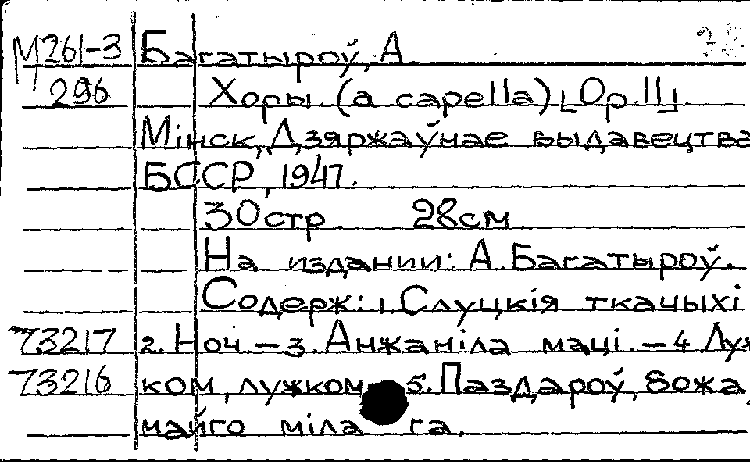 М261-3 Багатыроў, А
296 Хоры (a capella) [Op. II].
Мінск, Дзяржаўнае выдавецтва
БССР, 1947.
30 стр 28 см
На издании: А. Багатыроў.
Содерж: 1. Слуцкія ткачыхі
73217 2. Ноч – 3. Анжаніла маці. – 4 Луж
73216 ком, лужком – 5. Паздароў, божа,
майго міла га.